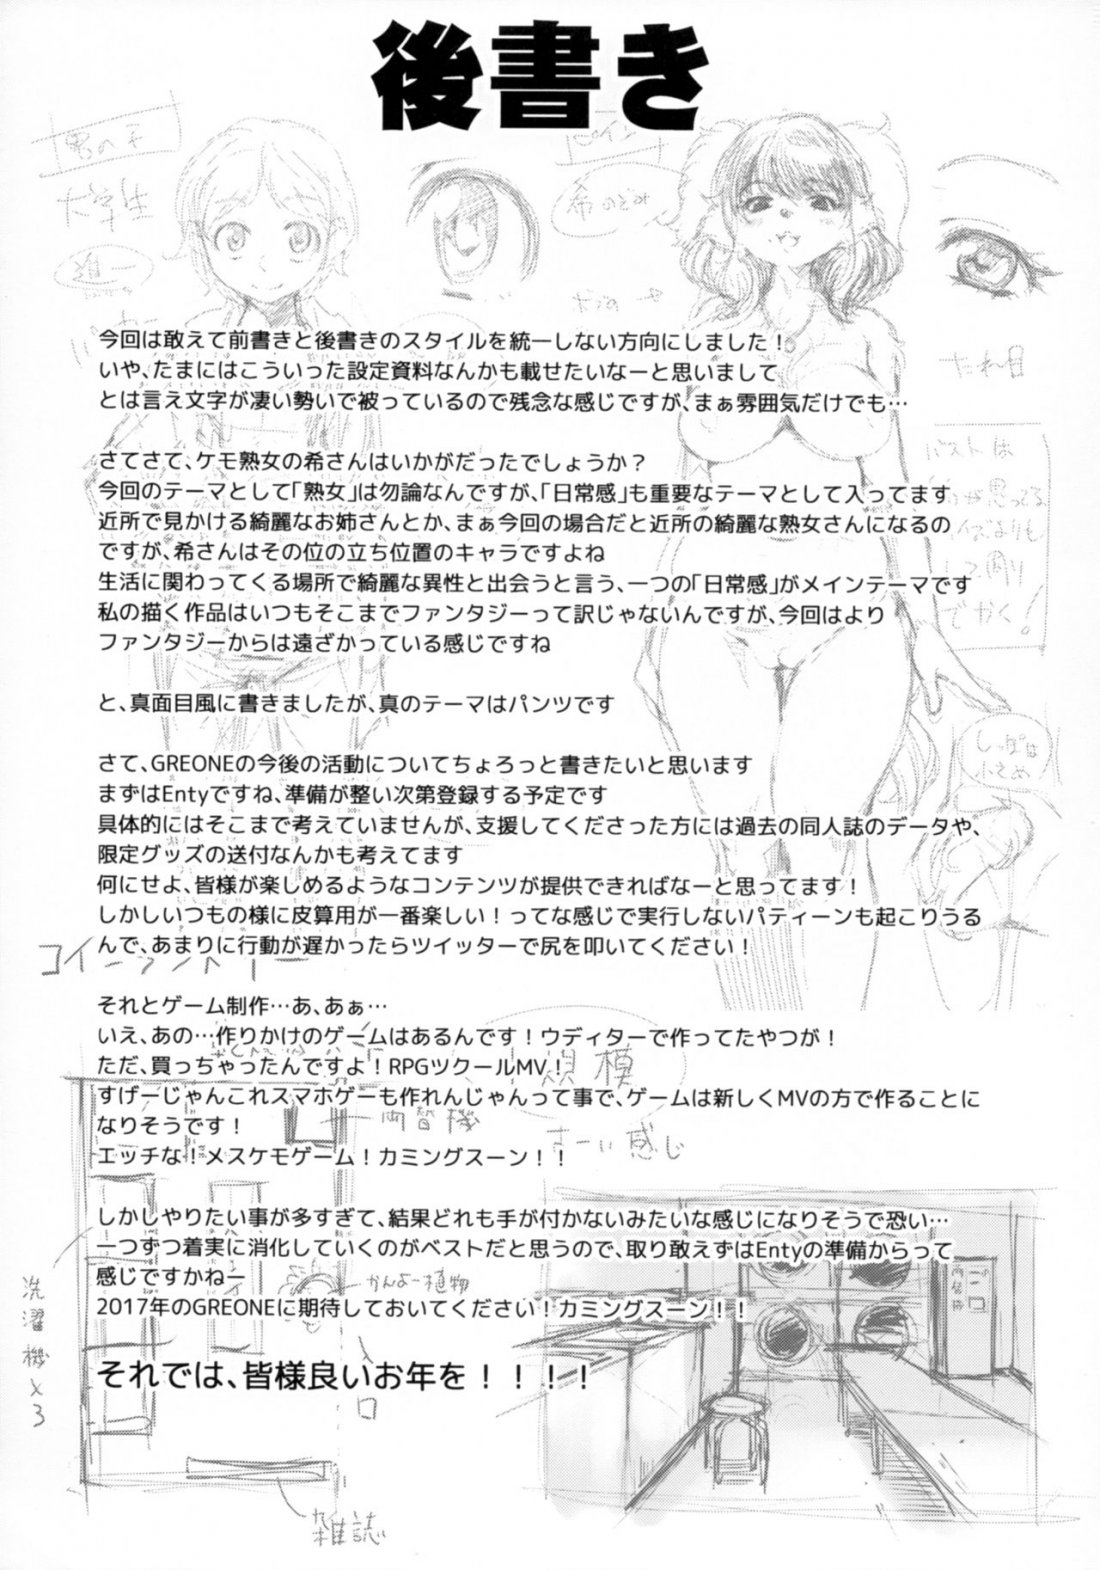 後書き
男の子
大学生
希のぞみ
たれ目
今回は敢えて前書きと後書きのスタイルを統一しない方向にしました!
いや、たまにはこういった設定資料なんかも載せたいなーと思いまして
とは言え文字が凄い勢いで被っているので残念な感じですが、まぁ雰囲気だけでも…
さてさて、ケモ熟女の希さんはいかがだったでしょうか?
今回のテーマとして「熟女」は勿論なんですが、「日常感」も重要なテーマとして入ってます
近所で見かける綺麗なお姉さんとか、まぁ今回の場合だと近所の綺麗な熟女さんになるの
ですが、希さんはその位の立ち位置のキャラですよね
生活に関わってくる場所で綺麗な異性と出会うと言う、一つの「日常感」がメインテーマです
私の描く作品はいつもそこまでファンタジーって訳じゃないんですが、今回はより
ファンタジーからは遠ざかっている感じですね
と、真面目風に書きましたが、真のテーマはパンツです
しっぽは
小さめ
さて、GREONEの今後の活動についてちょろっと書きたいと思います
まずはEntyですね、準備が整い次第登録する予定です
具体的にはそこまで考えていませんが、支援してくださった方には過去の同人誌のデータや、
限定グッズの送付なんかも考えてます
何にせよ、皆様が楽しめるようなコンテンツが提供できればなーと思ってます!
しかしいつもの様に皮算用が一番楽しい!ってな感じで実行しないパティーンも起こりうる
んで、あまりに行動が遅かったらツイッターで尻を叩いてください!
コインランドリー
それとゲーム制作…あ、あぁ…
いえ、あの…作りかけのゲームはあるんです!ウディターで作ってたやつが!
ただ、買っちゃったんですよ!RPGツクールMV!
すげーじゃんこれスマホゲーも作れんじゃんって事で、ゲームは新しくMVの方で作ることに
なりそうです!
両替機
エッチな!メスケモゲーム!カミングスーン!!
しかしやりたい事が多すぎて、結果どれも手が付かないみたいな感じになりそうで恐い…
一つずつ着実に消化していくのがベストだと思うので、取り敢えずはEntyの準備からって
感じですかねー
かんよー植物
2017年のGREONEに期待しておいてください!カミングスーン!!
洗濯機×3
それでは、皆様良いお年を!!!!
雑誌